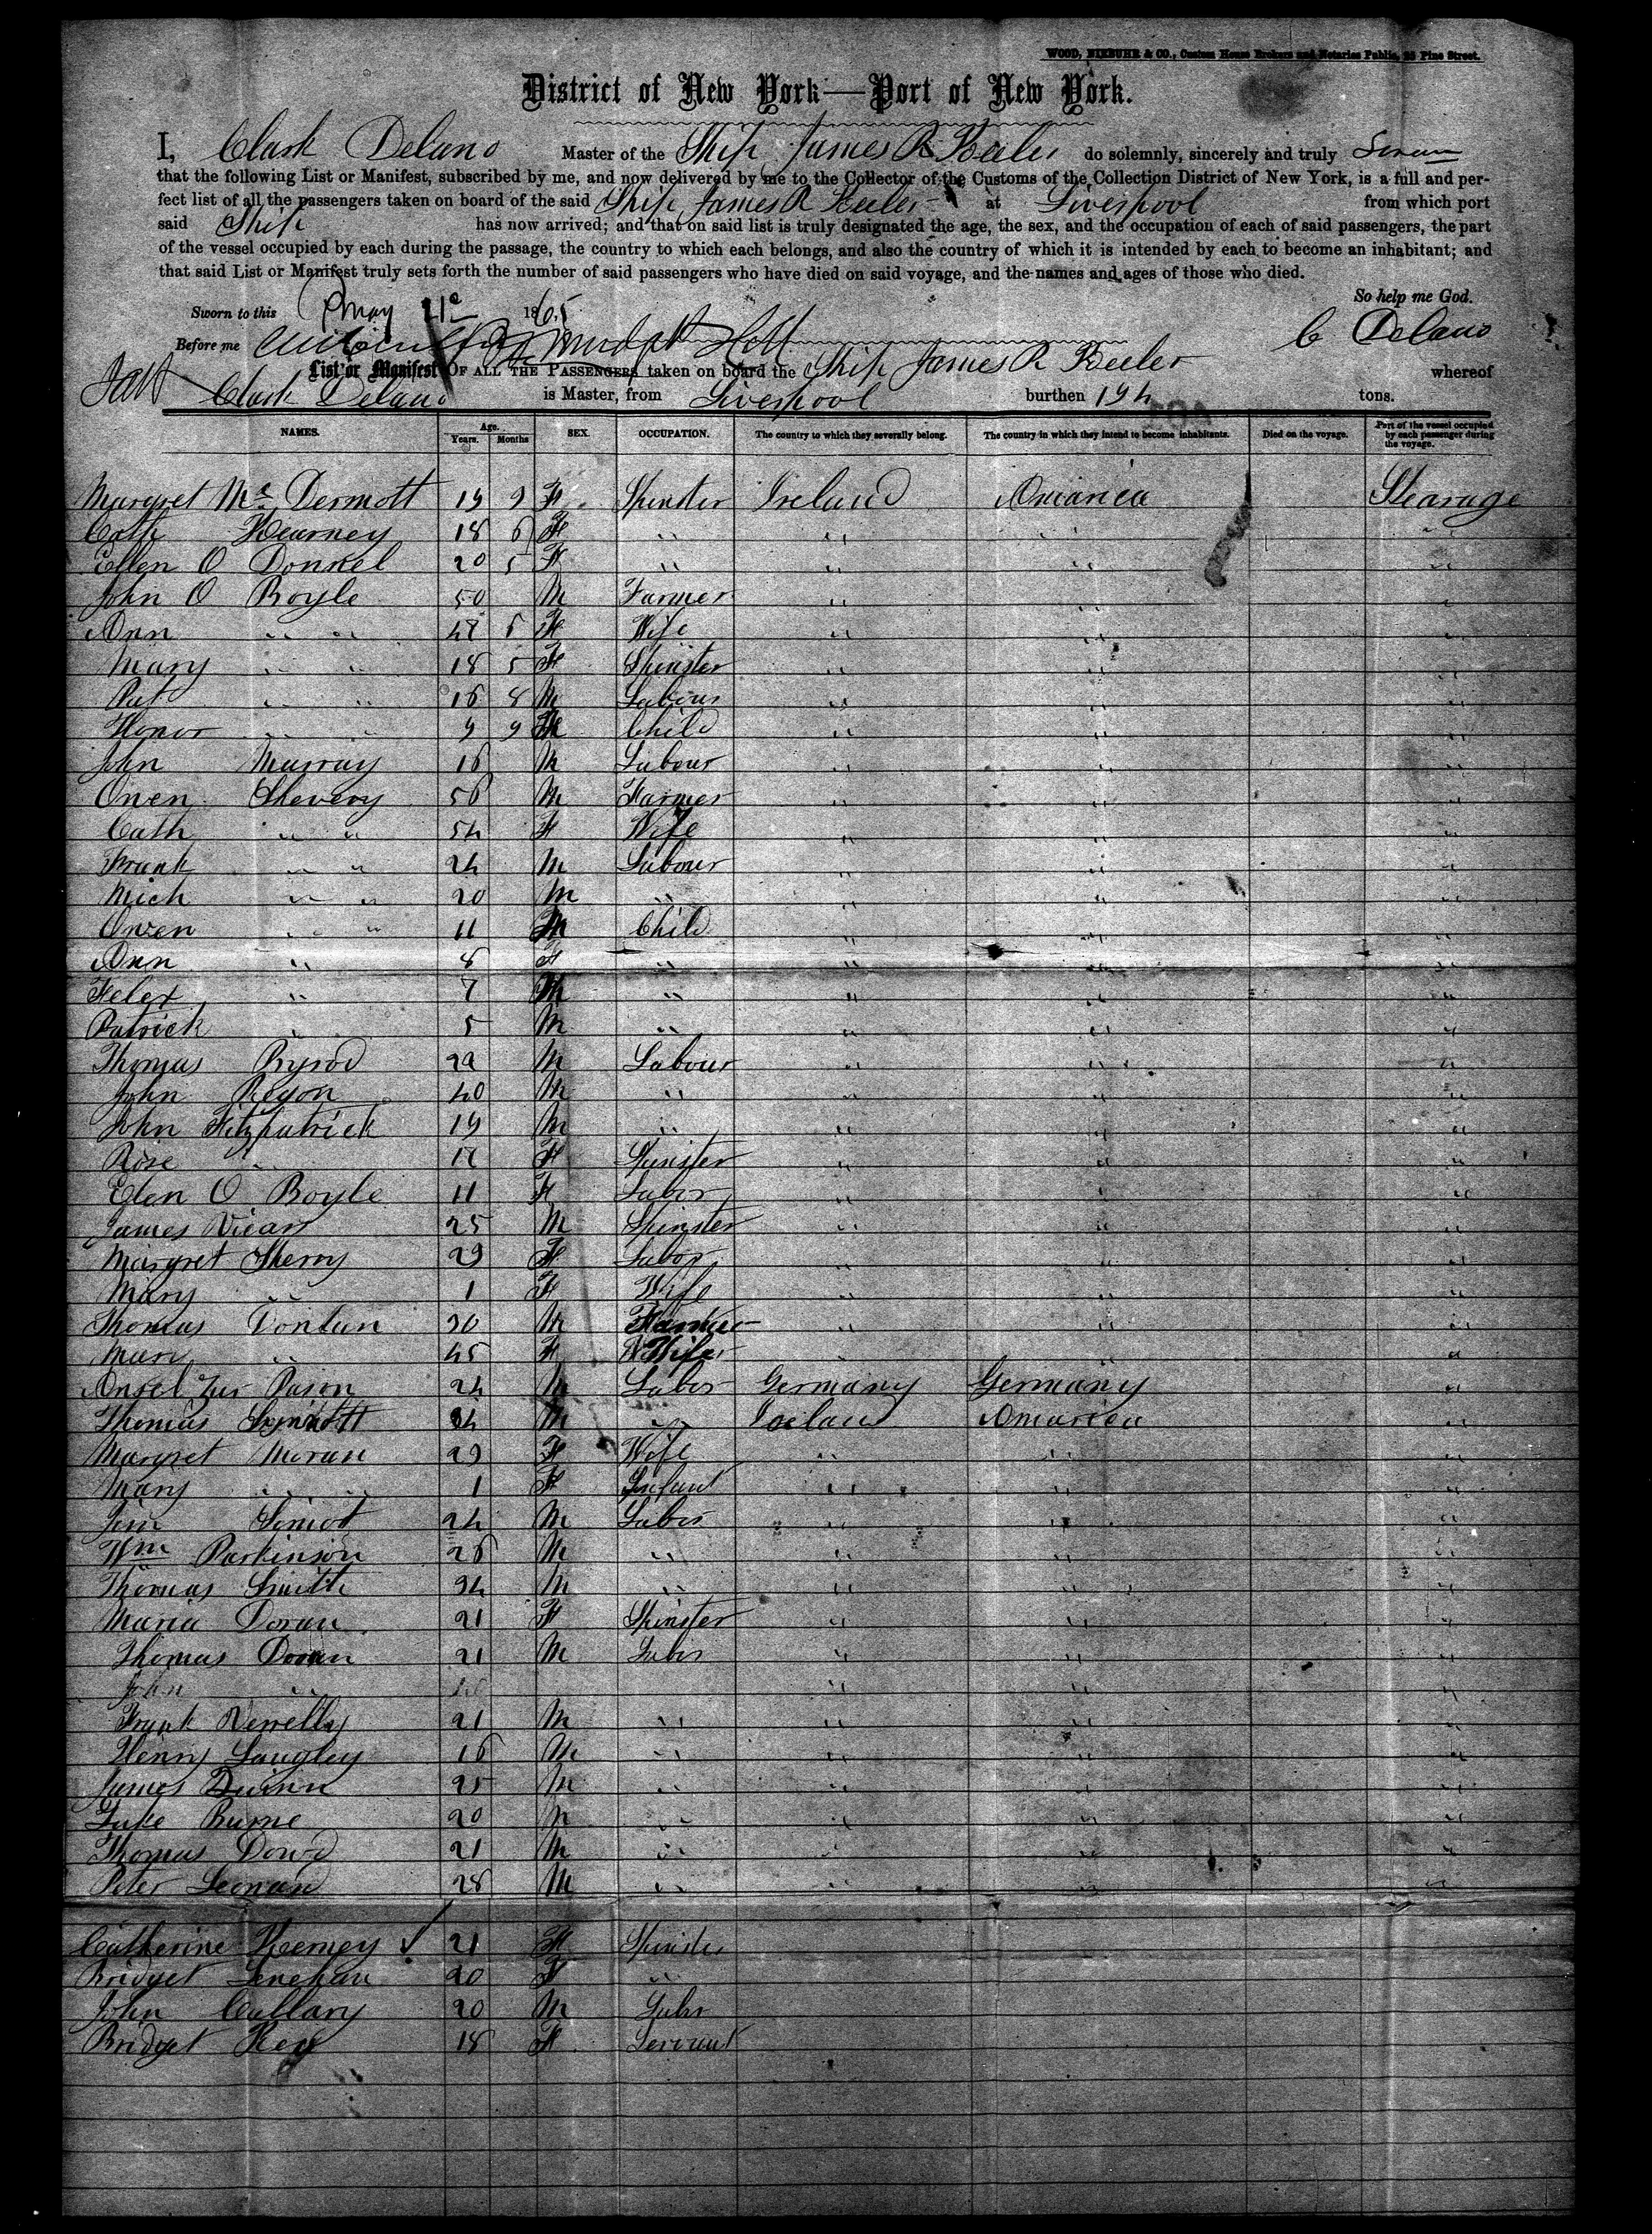 WOOD, NIEBUHR & CO., Custom House Brokers and Notaries Public, 25 Pine Street.
District of New York—Port of New York.
I, Clark Delano Master of the Ship James R Keeler do solemnly, sincerely and truly
that the following List or Manifest, subscribed by me, and now delivered by me to the Collector of the Customs of the Collection District of New York, is a full and per-
fect list of all the passengers taken on board of the said Ship James R Keeler at Liverpool from which port
said Ship has now arrived; and that on said list is truly designated the age, the sex, and the occupation of each of said passengers, the part
of the vessel occupied by each during the passage, the country to which each belongs, and also the country of which it is intended by each to become an inhabitant; and
that said List or Manifest truly sets forth the number of said passengers who have died on said voyage, and the names and ages of those who died.
So help me God.
Sworn to this May 1865
Before me C Delano
List or Manifest OF ALL THE PASSENGERS taken on board the Ship James R Keeler whereof
Clark Delano is Master, from Liverpool burthen tons.
NAMES. Age. Years. Months SEX. OCCUPATION. The country to which they severally belong. The country in which they intend to become inhabitants. Died on the voyage. Part of the vessel occupied by each passenger during the voyage.
Margret Mc Dermott 19 9 F Spinster Ireland Amarica Stearage
Cath Kearney 18 6 F " " " "
Ellen O Donnel 20 5 F " " " "
John O Boyle 50 M Farmer " " "
Ann " " 48 6 F Wife " " "
Mary " " 18 5 F Spinster " " "
Pat " " 16 8 M Labour " " "
Honor " " 9 9 Child " " "
John Murray 16 M Labour " " "
Owen Shevery 56 M Farmer " " "
Cath " " 54 F Wife " " "
Frank " " 24 M Labour " " "
Mich " " 20 M " " " "
Owen " " 11 M Child " " "
Ann " 8 F " " " "
Felex " 7 M " " " "
Patrick " 5 M " " " "
Thomas 22 M Labour " " "
John Regon 40 M " " " "
John Fitzpatrick 19 M " " " "
Rose " F Spinster " " "
Elen O Boyle 11 F Labor " " "
James 25 M Spinster " " "
Margret Sherry 29 F Labor " " "
Mary " 1 F Wife " " "
Thomas Donlan M Farmer " " "
Mary " 45 F Wife " " "
24 M Labor Germany Germany "
Thomas M " Ireland Amarica "
Margret Moran 29 F Wife " " "
Mary " " 1 F Infant " " "
Jim 24 M Labor " " "
Wm Parkinson 26 M " " " "
Thomas Smith 34 M " " " "
Maria Doran 21 F Spinster " " "
Thomas Doran 21 M Labor " " "
John " " " "
Frank 21 M " " " "
Henry Langley 16 M " " " "
James Quinn 25 M " " " "
Luke Burne 20 M " " " "
Thomas Dowd 21 M " " " "
Peter Leonard 28 M " " " "
Catherine Keerney 21 F Spinster
Bridget Lenehan 20 F "
John Cullary 20 M Labr
Bridget 18 F Servant